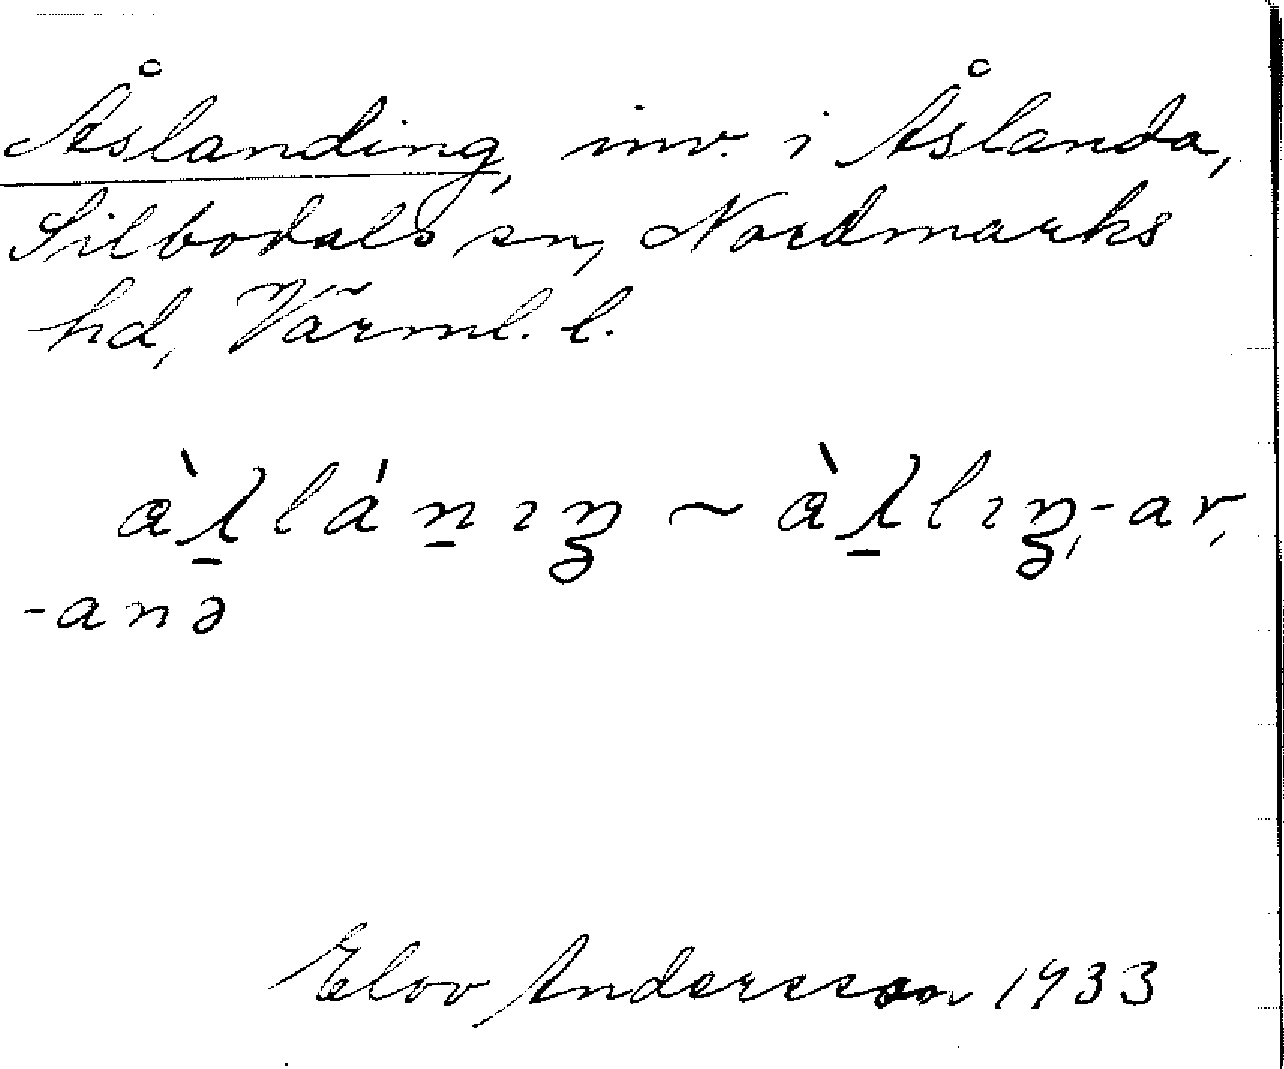 Åslanding, inv. i Åslanda,
Silbodals sn, Nordmarks
hd, Värml. l.
àʎ̠lán̠ıŋ ~ àʎ̠lıŋ, -ar,
-anə
Elov Andersson 1933